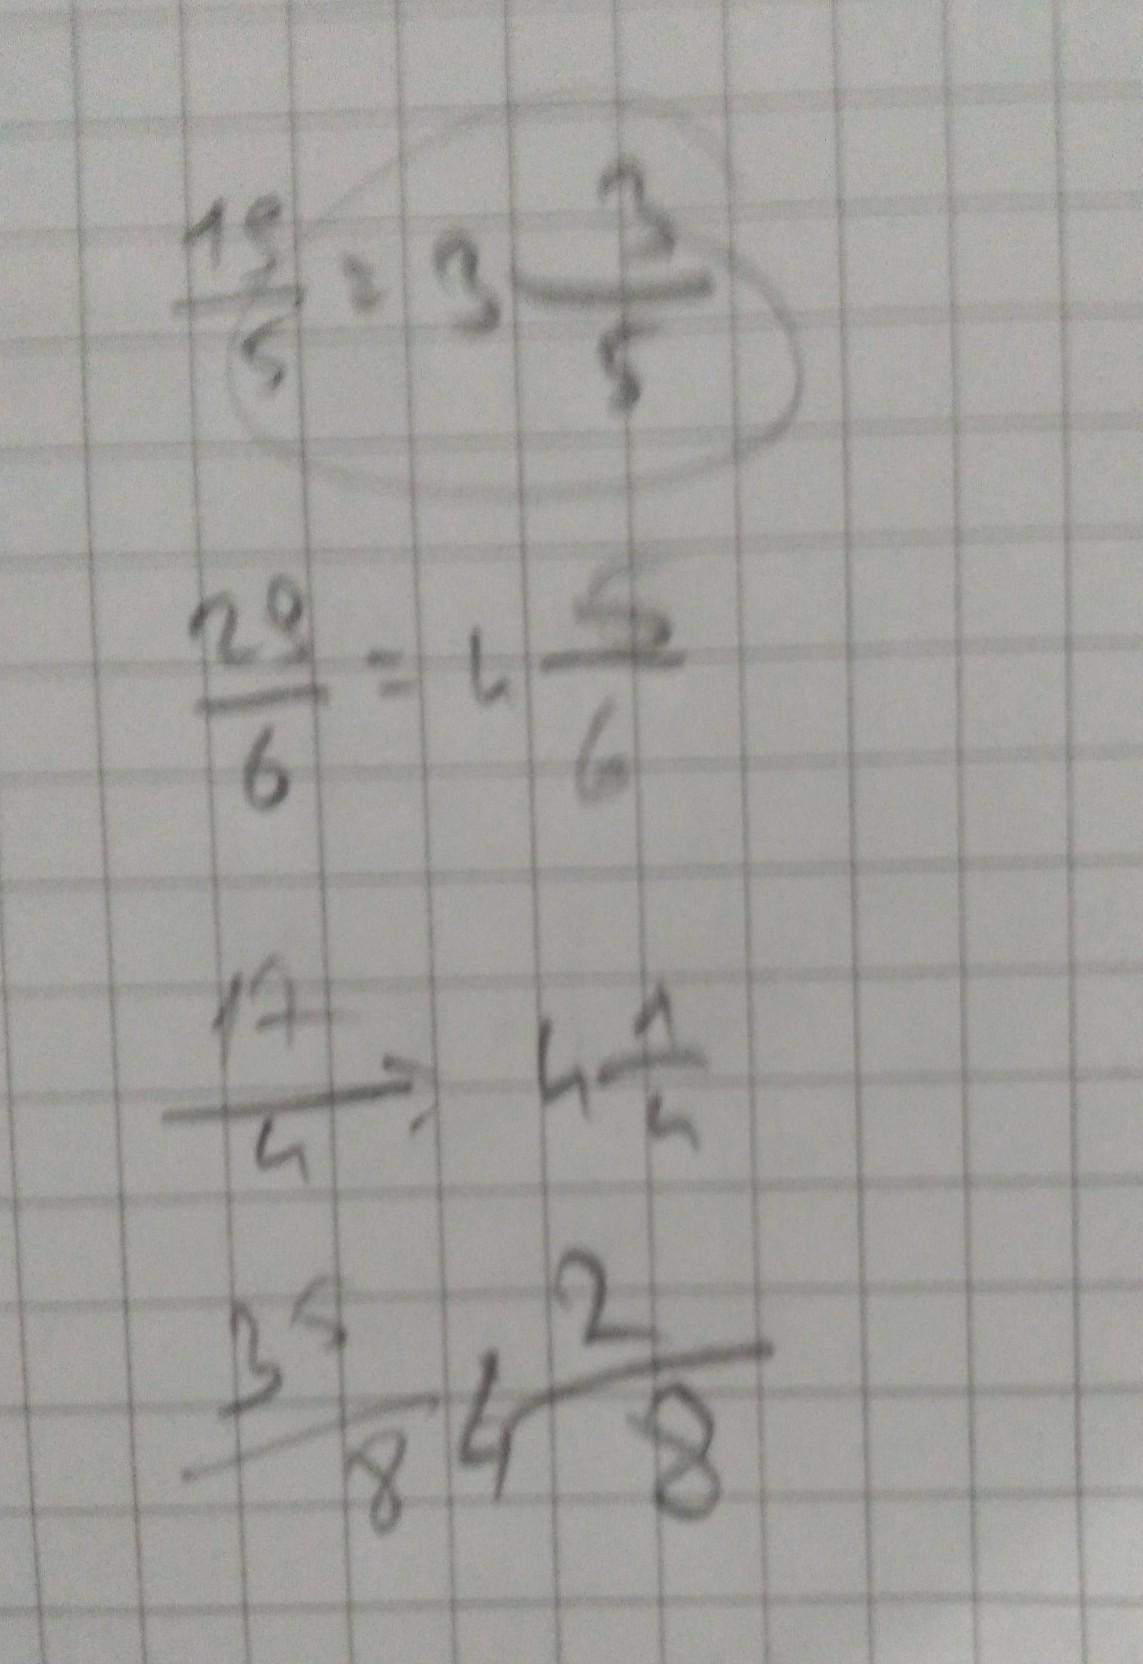 19/5 = 3 3/5
29/6 = 4 5/6
17/4 = 4 1/4
35/8 4 2/8